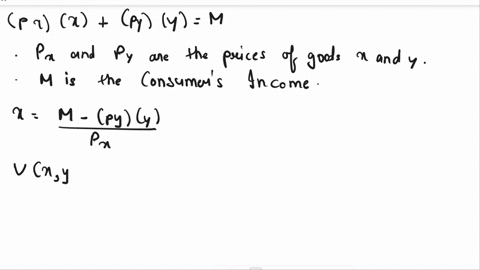 (Px) (x) + (Py) (y) = M
· Px and Py are the prices of goods x and y.
· M is the Consumer's Income.
x = M - (Py) (y)
Px
U (x, y